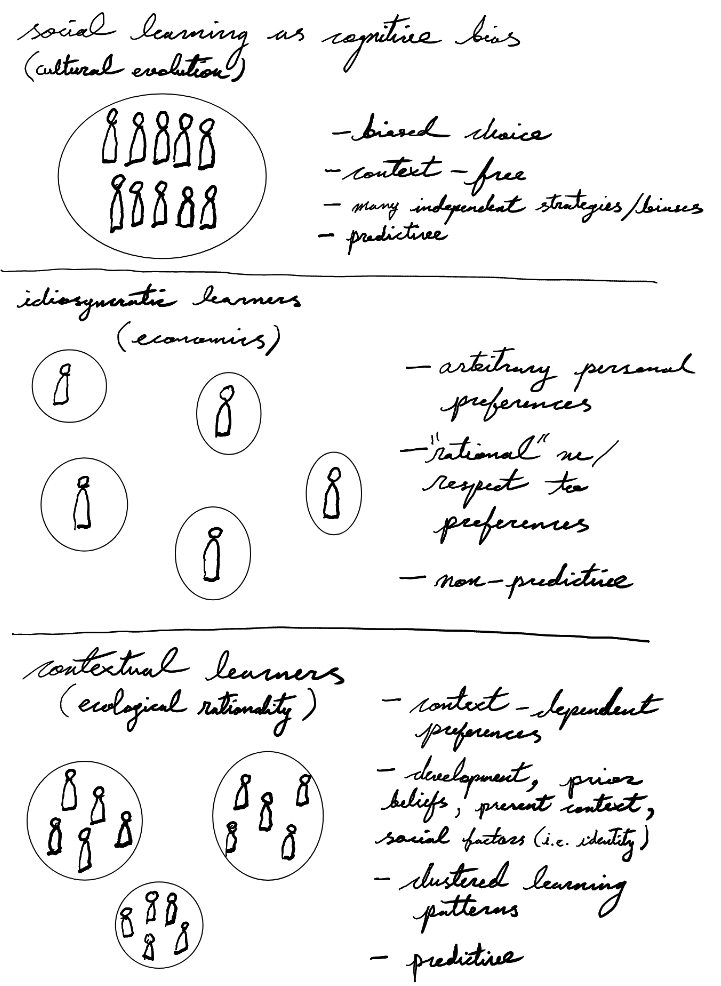 social learning as cognitive bias
(cultural evolution)
- biased choice
- context-free
- many independent strategies/biases
- predictive
idiosyncratic learners
(economics)
- arbitrary personal
preferences
- "rational" w/
respect to
preferences
- non-predictive
contextual learners
(ecological rationality)
- context-dependent
preferences
- development, prior
beliefs, present context,
social factors (i.e. identity)
- clustered learning
patterns
- predictive